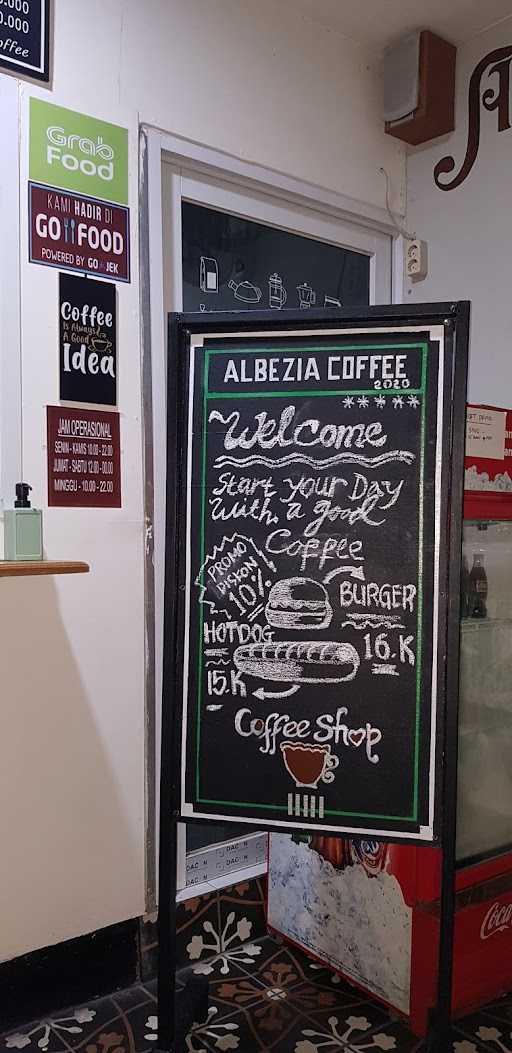 .000
0.000
offee
Grab
Food
KAMI HADIR DI
GO FOOD
POWERED BY GO JEK
Coffee
Is Always
A Good
Idea
JAM OPERASIONAL
SENIN - KAMIS 10.00 - 22.00
JUMAT - SABTU 12.00 - 00.00
MINGGU - 10.00 - 22.00
ALBEZIA COFFEE
2020
Welcome
Start your Day
With a good
Coffee
PROMO
DISKON
10%
BURGER
16.K
HOTDOG
15.K
Coffee Shop
Coca